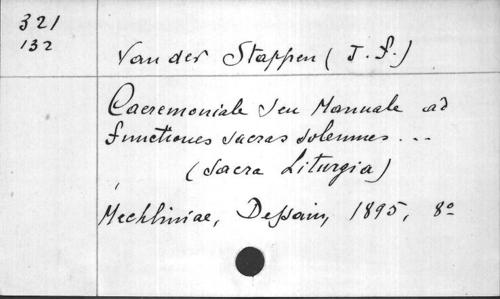 321
132
Van der Stappen (J. F.)
Caeremoniale seu Manuale ad
functiones sacras solemnes ...
(Sacra Liturgia)
Mechliniae, Dessain, 1895, 8º